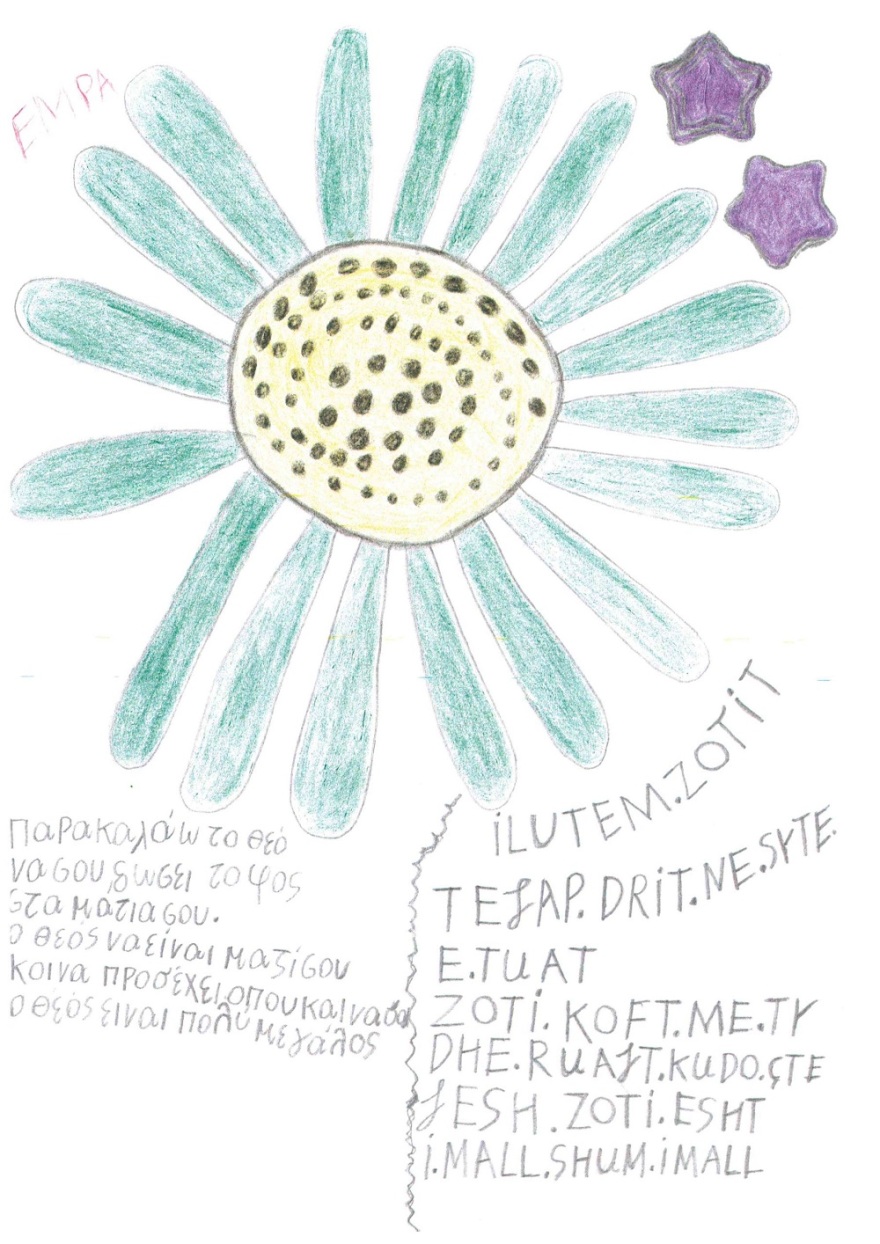 ΕΜΡΑ
Παρακαλάω το θεό
να σου δωσει το φος
στα ματια σου.
ο θεός να είναι μαζί σου
κοι να προσέχει οπου και να
ο θεός ειναι πολύ μεγάλος
iLUTEM.ZOTiT
TEJAP.DRiT.NE.SYTE.
E.TUAT
ZOTi.KOFT.ME.TY
DHE.RUAJT.KUDO.ÇTE
JESH.ZOTi.ESHT
i.MALL.SHUM.iMALL